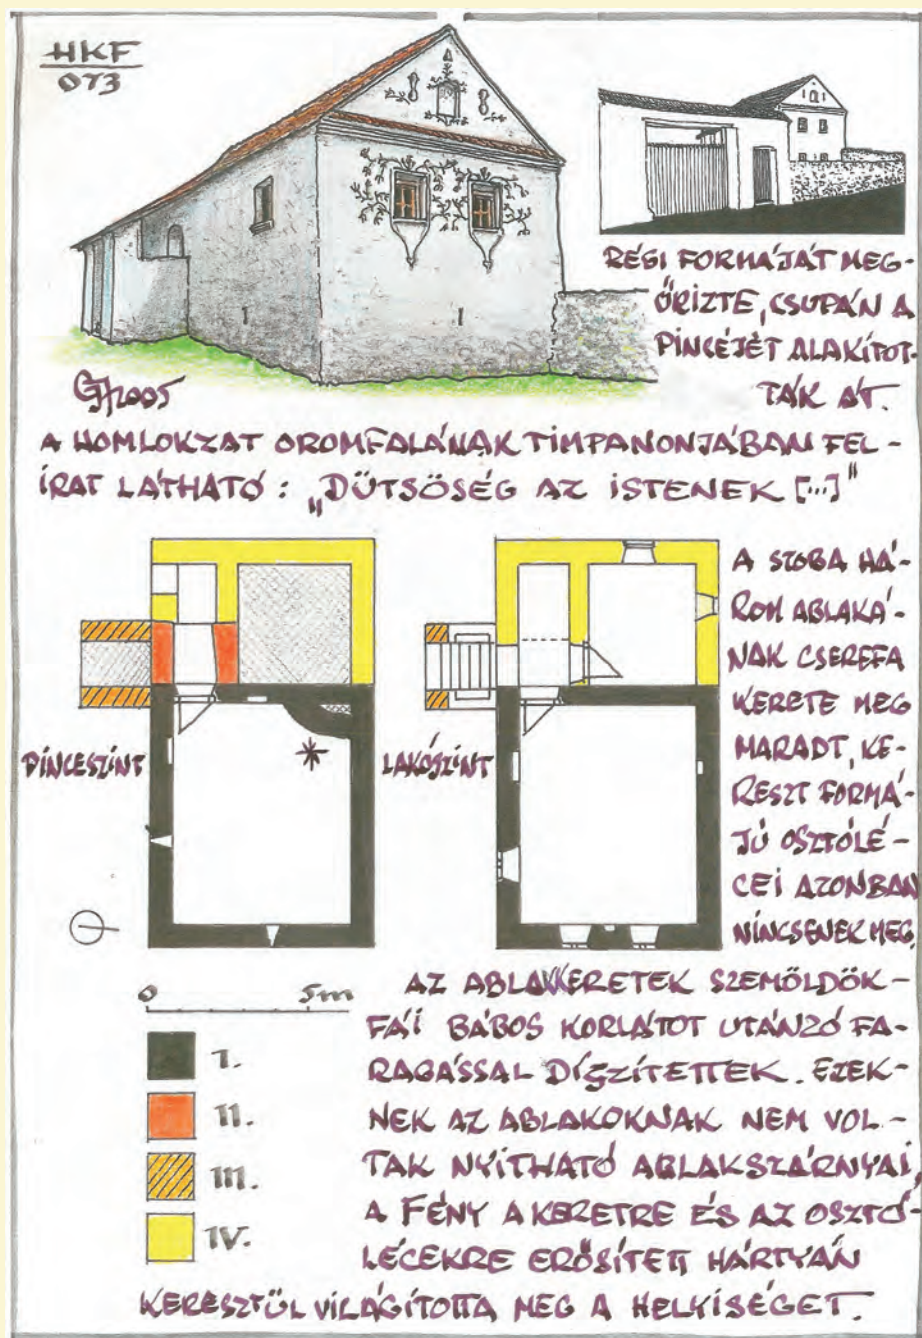 HKF
073
RÉGI FORMÁJÁT MEG-
ŐRIZTE, CSUPÁN A
PINCÉJÉT ALAKÍTOT-
TÁK ÁT.
2005
A HOMLOKZAT OROMFALÁNAK TIMPANONJÁBAN FEL-
ÍRAT LÁTHATÓ: „DÜTSÖSÉG AZ ISTENEK [...]”
A SZOBA HÁ-
ROM ABLAKÁ-
NAK CSEREFA
KERETE MEG
MARADT, KE-
RESZT FORMÁ-
JÚ OSZTÓLÉ-
CEI AZONBAN
NINCSENEK MEG.
PINCESZINT
LAKÓSZINT
0 5m
I.
II.
III.
IV.
AZ ABLAKKERETEK SZEMÖLDÖK-
FÁI BÁBOS KORLÁTOT UTÁNZÓ FA-
RAGÁSSAL DÍSZÍTETTEK. EZEK-
NEK AZ ABLAKOKNAK NEM VOL-
TAK NYITHATÓ ABLAKSZÁRNYAI,
A FÉNY A KERETRE ÉS AZ OSZTÓ-
LÉCEKRE ERŐSÍTETT HÁRTYÁN
KERESZTÜL VILÁGÍTOTTA MEG A HELYISÉGET.